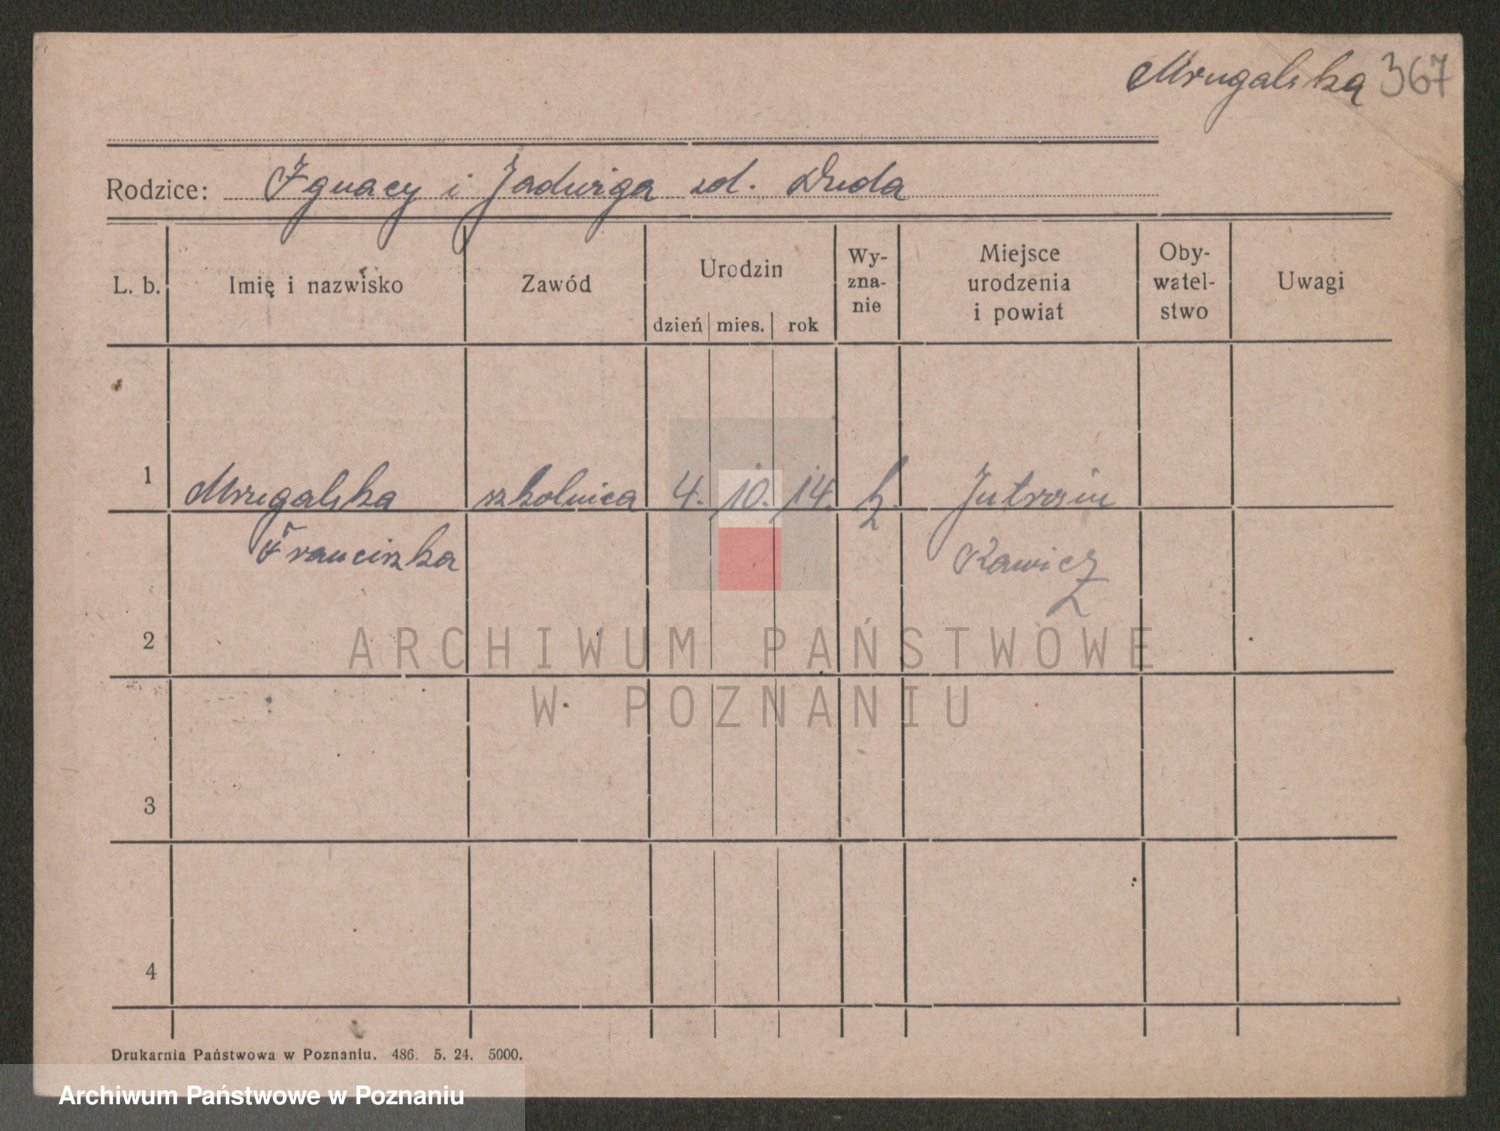 Mrugalską 367
Rodzice: Ignacy i Jadwiga zd. Duda
L. b. Imię i nazwisko Zawód Urodzin dzień mies. rok Wy-zna-nie Miejsce urodzenia i powiat Oby-watel-stwo Uwagi
1 Mrugalska szkolnica 4. 10. 14. k. Jutrosin
Franciszka Rawicz
2
ARCHIWUM PAŃSTWOWE
W POZNANIU
3
4
Drukarnia Państwowa w Poznaniu. 486. 5. 24. 5000.
Archiwum Państwowe w Poznaniu